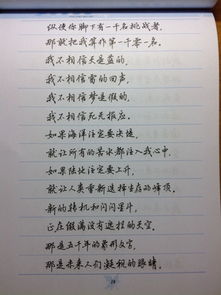 纵使你脚下有一千名挑战者，
那就把我算作第一千零一名。
我不相信天是蓝的，
我不相信雷的回声，
我不相信梦是假的，
我不相信死无报应。
如果海洋注定要决堤，
就让所有的苦水都注入我心中，
如果陆地注定要上升，
就让人类重新选择生存的峰顶。
新的转机和闪闪星斗，
正在缀满没有遮拦的天空。
那是五千年的象形文字，
那是未来人们凝视的眼睛。